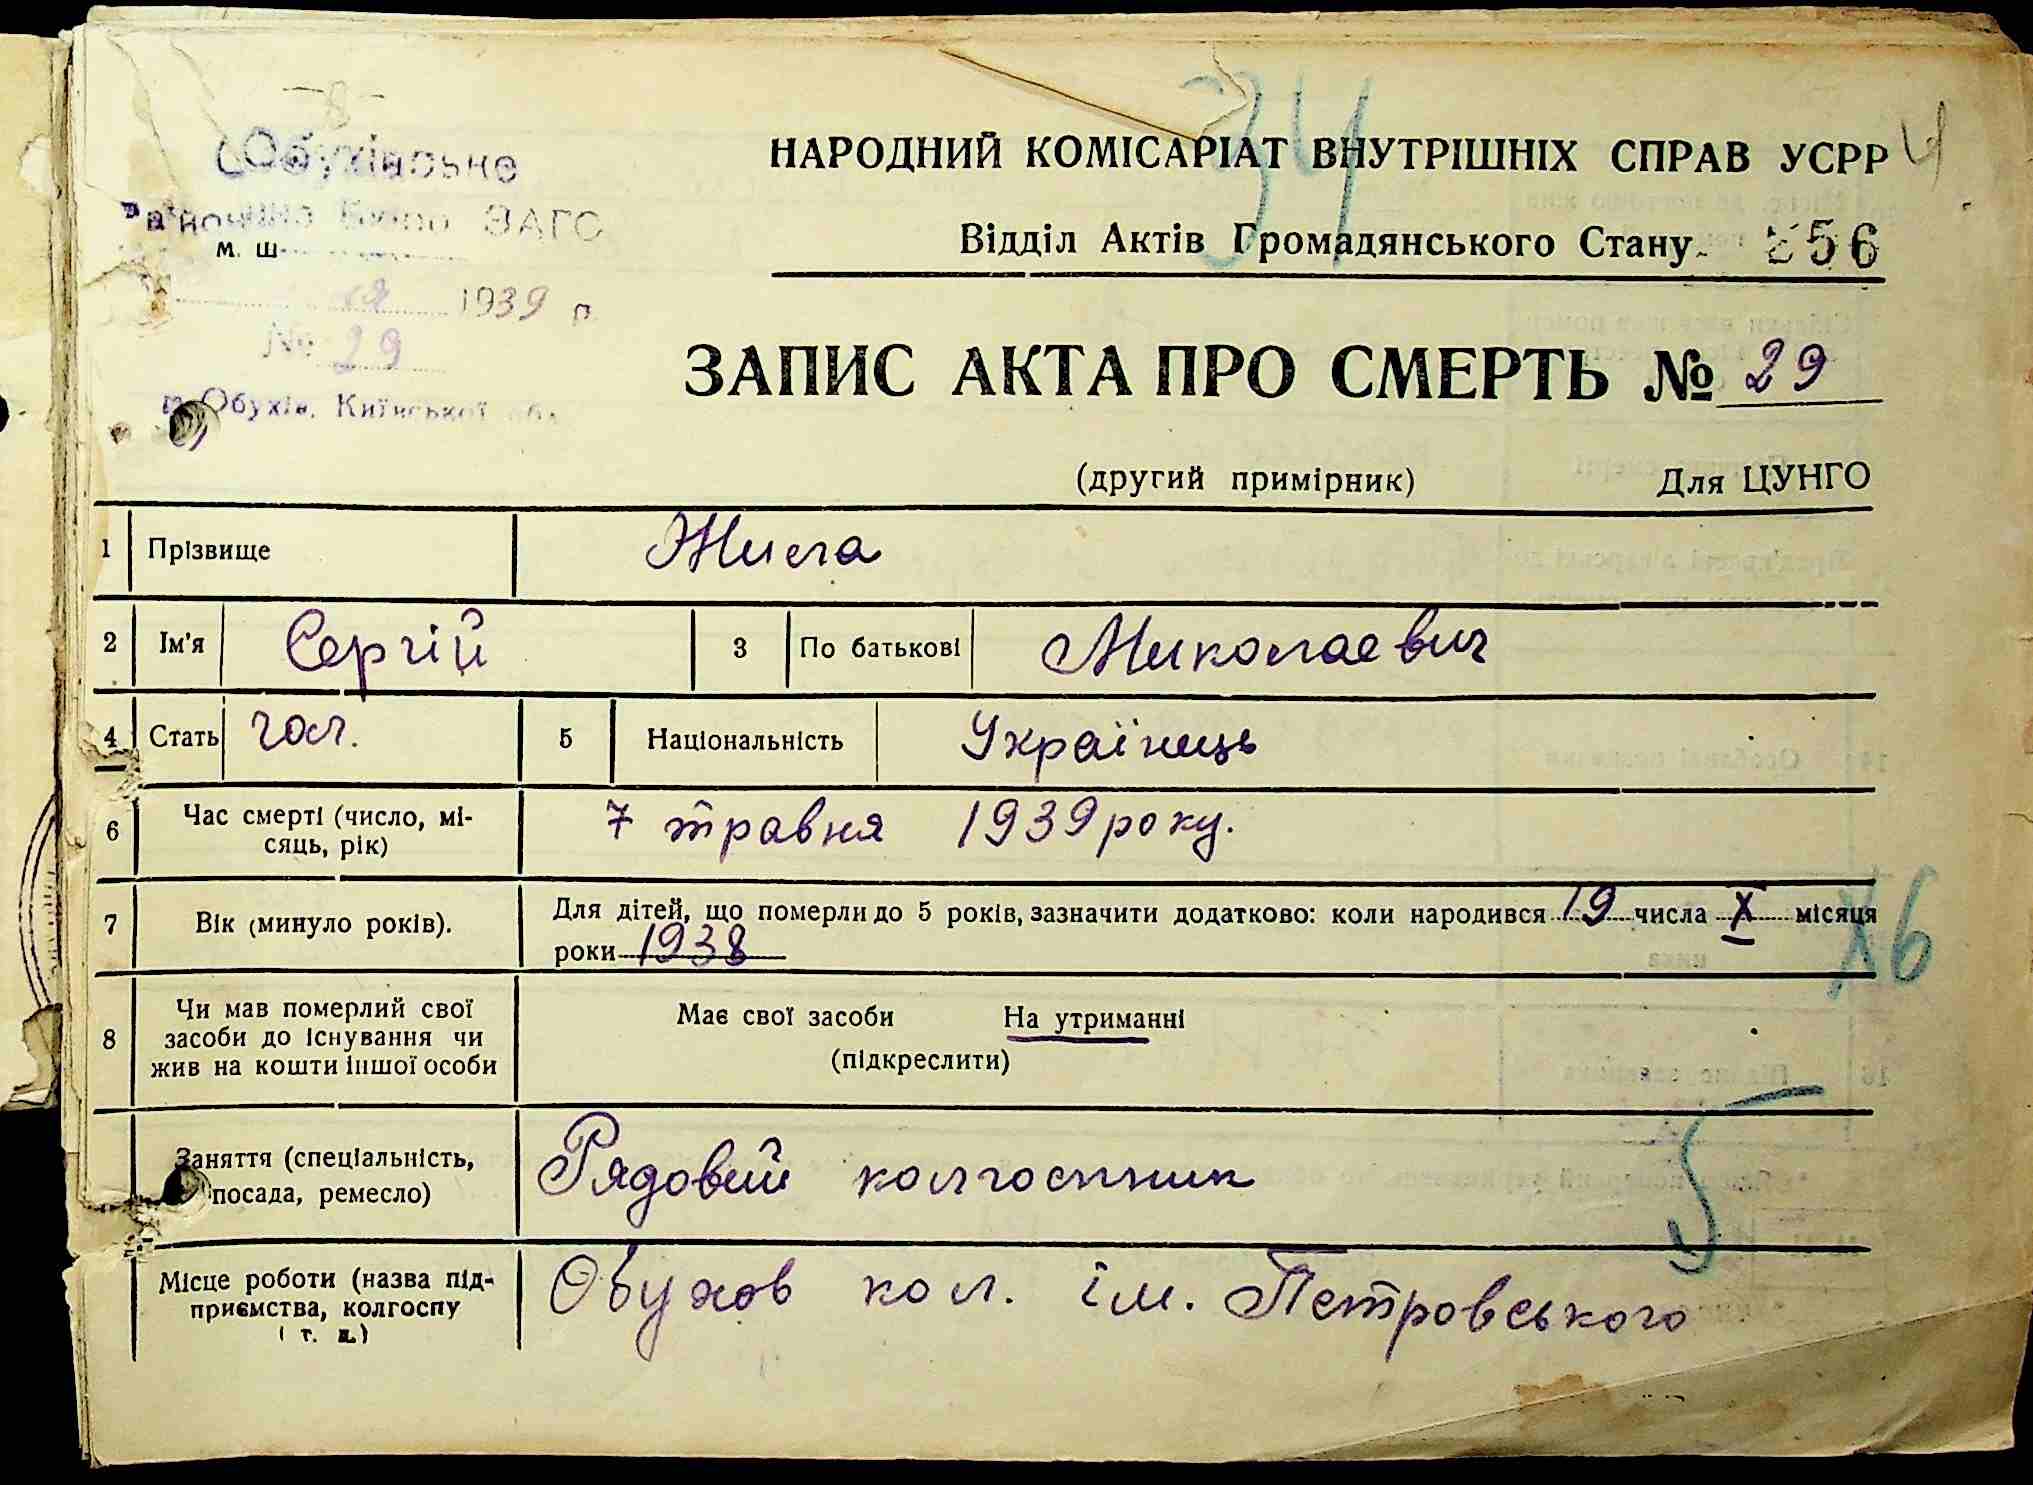 34
4
Обухівське
Районне Бюро ЗАГС
НАРОДНИЙ КОМІСАРІАТ ВНУТРІШНІХ СПРАВ УСРР
Відділ Актів Громадянського Стану
56
м. ш.
1939 р.
№ 29
м. Обухів, Київської об.
ЗАПИС АКТА ПРО СМЕРТЬ № 29
(другий примірник) Для ЦУНГО
1 Прізвище Жила
2 Ім'я Сергій 3 По батькові Миколаевич
4 Стать чол. 5 Національність Українець
6 Час смерті (число, мі-
сяць, рік) 7 травня 1939 року.
7 Вік (минуло років). Для дітей, що померли до 5 років, зазначити додатково: коли народився 19 числа X місяця
роки 1938
Х6
8 Чи мав померлий свої
засоби до існування чи
жив на кошти іншої особи
Має свої засоби На утриманні
(підкреслити)
5
Заняття (спеціальність,
посада, ремесло) Рядовий колгоспник
Місце роботи (назва під-
приємства, колгоспу
і т. п.) Обухов кол. ім. Петровського